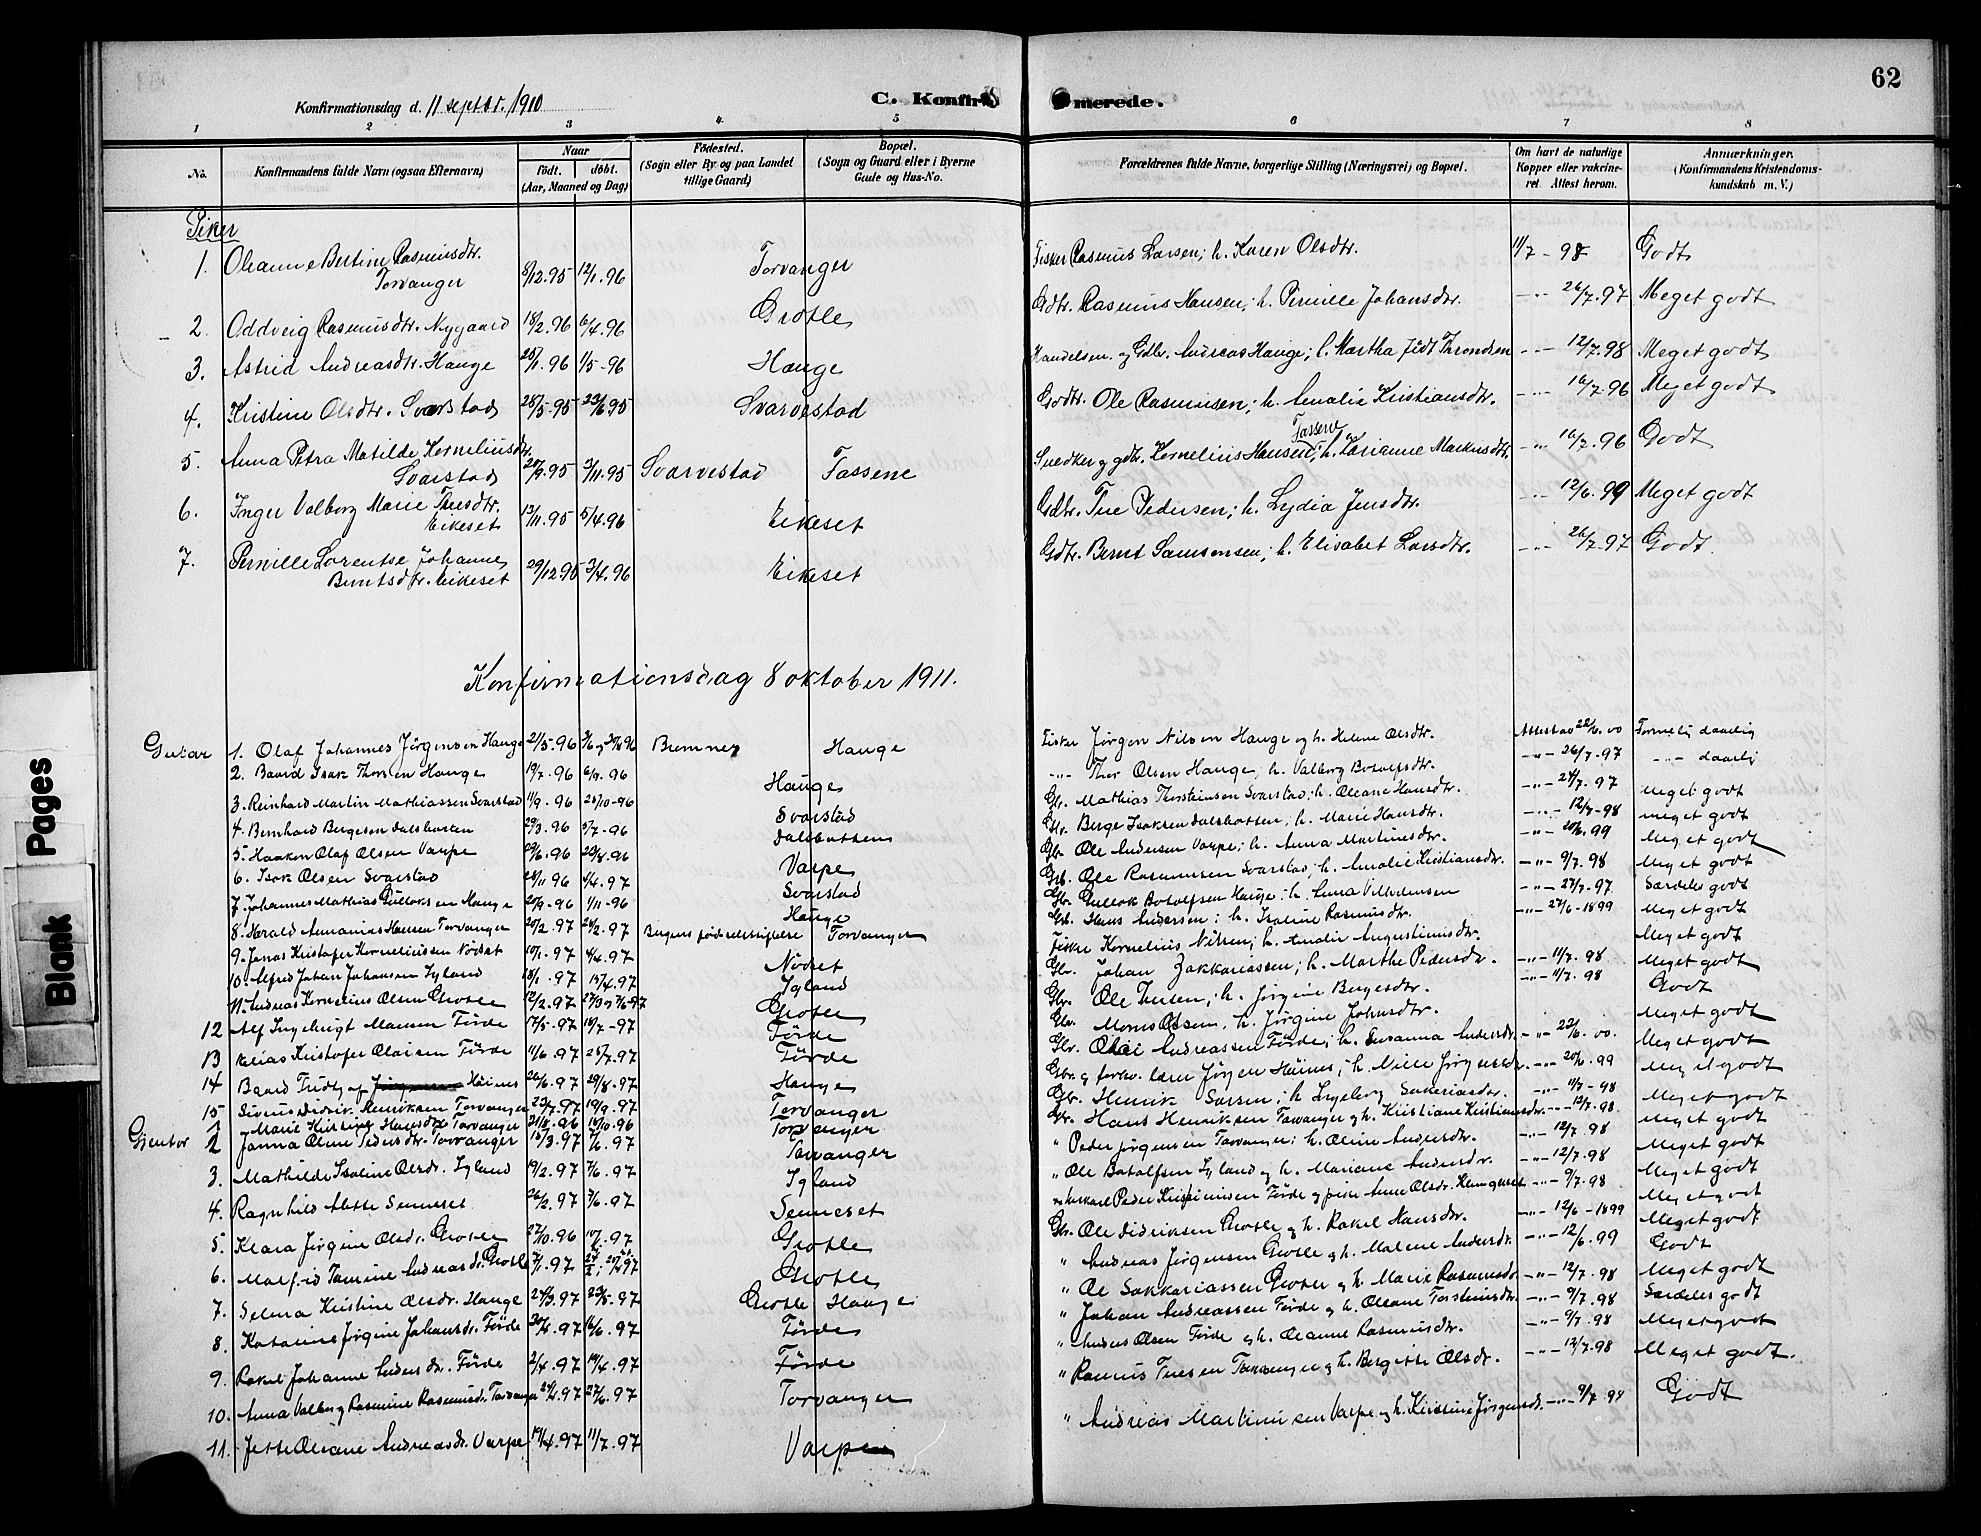 62
Konfirmationsdag d. 11 septbr. 1910
C. Konfirmerede.
1 2 3 4. 5 6 7 8
No. Konfirmandens fulde Navn (ogsaa Efternavn) Naar født. døbt. (Aar, Maaned og Dag) Fødested. (Sogn eller By og paa Landet tillige Gaard) Bopæl. (Sogn og Gaard eller i Byerne Gade og Hus-No. Forældrenes fulde Navne, borgerlige Stilling (Næringsvei) og Bopæl. Om havt de naturlige Kopper eller vakcineret. Attest herom. Anmærkninger. (Konfirmandens Kristendomskundskab m. V.)
Piker
1. Oleanne Bertine Rasmusdtr. Torvanger 8/12.95 12/1.96 Torvanger Fisker Rasmus Larsen; h. Karen Olsdtr. 11/7-98 Godt
2. Oddveig Rasmusdtr. Nygaard 18/2.96 6/4.96 Grotle Gdbr. Rasmus Hansen; h. Pernille Johansdtr. -"- 26/7.97 Meget godt
3. Astrid Andreasdtr. Hauge 25/1.96 1/5-96 Hauge Handelsm. og Gdbr. Andreas Hauge; h. Martha född Throndsen -"- 12/7.98 Meget godt
4. Kristine Olsdtr. Svarstad 28/5-95 23/6 95 Svarvestad Gdbr. Ole Rasmussen; h. Amalie Kristiansdtr. -"- 16/7.96 Meget godt
5. Anna Petra Matilde Korneliusdtr. Svarstad 20/9.95 3/11.95 Svarvestad Tassene Snedker og gdbr. Kornelius Hansen Tassene; h. Karianne Markusdtr. -"- 16/7.96 Godt
6. Inger Valborg Marie Turesdtr. Eikeset 13/11.95 5/4.96 Eikeset Gdbr. Ture Pedersen; h. Lydia Jensdtr. -"- 12/6.99 Meget godt
7. Pernille Lorentse Johanne Berntsdtr. Eikeset 29/12.95 3/4.96 Eikeset Gdbr. Bernt Samsonsen; h. Elisabet Larsdtr. -"- 26/7.97 Godt.
Konfirmationsdag 8 oktober 1911.
Gutar 1. Olaf Johannes Jørgensen Hauge 21/5.96 Bremnes Hauge Fisker Jørgen Nilsen Hauge og h. Helene Olsdtr. Attestad 22/6.00 daarlig
2. Baard Isak Thorsen Hauge 19/7.96 6/9.96 Hauge -"- Thor Olsen Hauge, h. Valborg Botolfsdtr. -"- 26/7-97 -"- daarlig
3. Reinhard Martin Mathiassen Svarstad 11/9.96 25/10-96 Svarstad Gbr. Mathias Thorsteinsen Svarstad; h. Oleane Hansdtr. -"- 27/7.97 Meget godt
4. Bernhard Bergesen Dalsbotten 29/3.96 5/7-96 Dalsbotten Gbr. Berge Isaksen Dalsbotten; h. Marie Hansdtr. -"- 12/7-98 meget godt
5. Haakon Olaf Olsen Varpe 29/6.96 20/8.96 Varpe Gbr. Ole Andersen Varpe; h. Anna Martinusdtr. -"- 20/6.99 Meget godt
6. Isak Olsen Svarstad 28/11 96 4/4.97 Svarstad Gbr. Ole Rasmussen Svarstad; h. Amalie Kristiansdtr. -"- 9/7.98 Meget godt
7. Johannes Mathias Gulloksen Hauge 20/9-96 1/11-96 Hauge Gbr. Gullok Botolfsen Hauge; h. Anna Vilhelmsen -"- 27/7-97 Særdeles godt
8. Herald Annanias Hansen Torvanger 20/2.97 24/2.97 Bergens fødselsstiftelse Torvanger Gbr. Hans Andersen; h. Isaline Rasmusdtr. -"- 27/6-1899 Meget godt
9. Jonas Kristofer Korneliussen Nödset 10/1.97 4/4.97 Nödset Fisker Kornelius Nilsen; h. Amalie Augustinusdtr. Meget godt
10. Alfred Johan Johansen Igland 18/1.97 15/4.97 Igland Gbr. Johan Zakkariassen; h. Marthe Pedersdtr. -"- 11/7.98 Meget godt
11. Andreas Kornelius Olsen Grotle 12/2.97 Grotle Gbr. Ole Iversen; h. Jørgine Bergesdtr. -"- 11/7.98 Godt
12 Alf Ingebrigt Monsen Förde 17/5-97 16/7-97 Förde Gbr. Mons Olsen, h. Jørgine Johnsdtr. Meget godt
13 Elias Kristofer Olaisen Förde 11/6.97 25/7.97 Förde Gbr. Olai Andreassen Förde; h. Susanna Andersdr. -"- 22/6.00. Meget godt
14 Baard Trudtjof Høines 26/6.97 29/8.97 Hauge Gbr. og forhv. lærer Jørgen Høines; h. Jørgensdr. -"- 20/6.99 Meget godt
15 Sivert Didrik Henriksen Torvanger 23/7.97 19/9.97 Torvanger Gbr. Henrik Larsen; h. Ingeborg Sakeriasdr. -"- 11/7-98 Meget godt
1 Marie Kristine Hansdtr. Torvanger 21/8.96 18/10.96 Torvanger Gbr. Hans Henriksen Torvanger og h. Kristiane Kristiansdr. -"- 12/7.98 Meget godt
Gjentor 2 Janna Oline Pedersdr. Torvanger 15/3.97 7/6.97 Torvanger " Peder Jørgensen Torvanger; h. Oline Andersdtr. -"- 12/7.98 Meget godt
3. Mathilde Isaline Olsdr. Igland 19/2.97 7/6.97 Igland " Ole Botolfsen Igland og h. Mariane Andersdr. -"- 12/7.98 Meget godt
4. Ragnhild Alette Senneset 26/2.97 7/6.97 Senneset Peder Kristiansen Förde og pike Anne Olsdr. -"- 9/7.98 Meget godt
5. Klara Jørgine Olsdr. Grotle 27/10.96 19/7.97 Grotle Gbr. Ole Didriksen Grotle og h. Rakel Hansdtr. -"- 12/6-1899 Meget godt
6. Malfrid Tomine Andreasdr. Grotle 7/1.97 Grotle " Andreas Jørgensen Grotle og h. Malene Andersdr. -"- 12/6.99 Godt
7. Selma Kristine Olsdr. Hauge 24/3.97 23/5-97 Grotle Hauge " Ole Sakkariassen Grotle og h. Marie Rasmusdr -"- 12/7.98 Meget godt
8. Katarine Jørgine Johansdr. Förde 30/4.97 16/6.97 Förde " Johan Andreassen Förde og h. Oleane Torsteinsdtr. -"- 9/7.98 Særdeles godt
9. Rakel Johanne Andersdr. Förde 2/4.97 19/4.97 Förde " Anders Olsen Förde og h. Oleanne Rasmusdtr. -"- 9/7.98 Meget godt
10. Anna Valborg Rasmine Rasmusdr. Torvanger 24/4.97 27/6.97 Torvanger " Rasmus Turesen Torvanger og h. Bergitte Olsdr. -"- 12/7.98 Meget godt.
11. Jette Oleane Andreasdr. Varpe 17/4.97 11/7.97 Varpe " Andreas Martinussen Varpe og h. Kristine Jørgensdr. -"- 9/7.98 Godt
Blank Pages